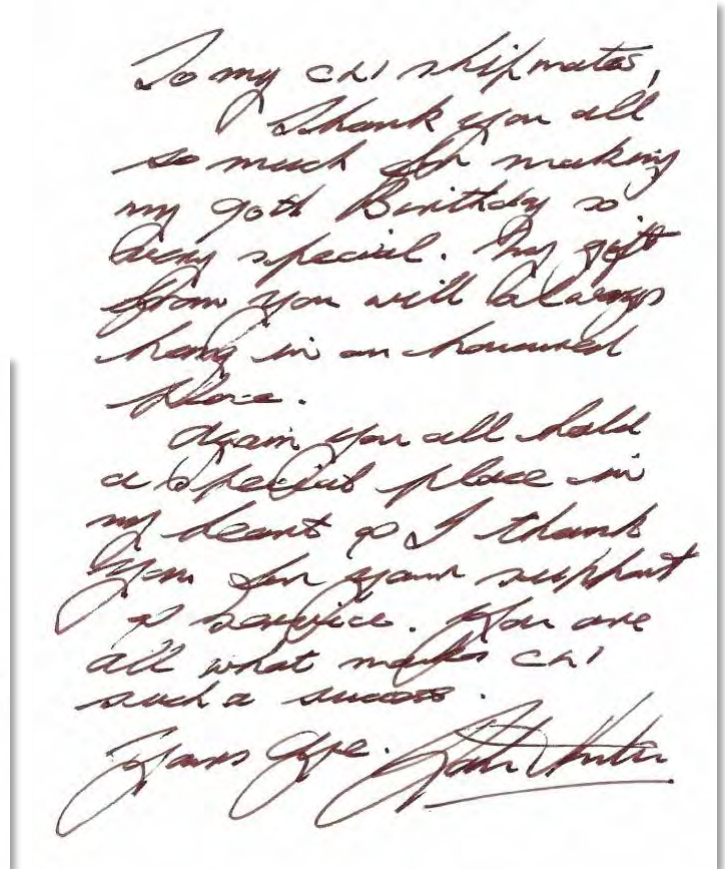 To my CLI shipmates,
Thank you all
so much for making
my 90th Birthday so
very special. My gift
from you will always
hang in an honoured
place.
Again you all hold
a special place in
my heart & I thank
you for your support
& service. You are
all what makes CLI
such a success.
Yours Aye.